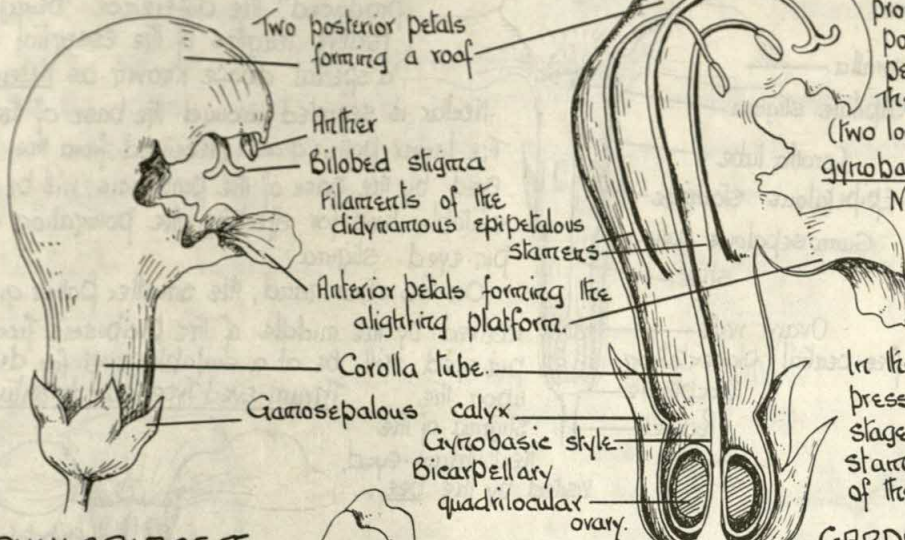 Two posterior petals
forming a roof
Anther
Bilobed stigma
Filaments of the
didynamous epipetalous
stamens
Anterior petals forming the
alighting platform.
Corolla tube.
Gamosepalous calyx.
Gynobasic style
Bicarpellary
quadrilocular
ovary.
(two lo
gynoba
In th
press
stage
stam
of th